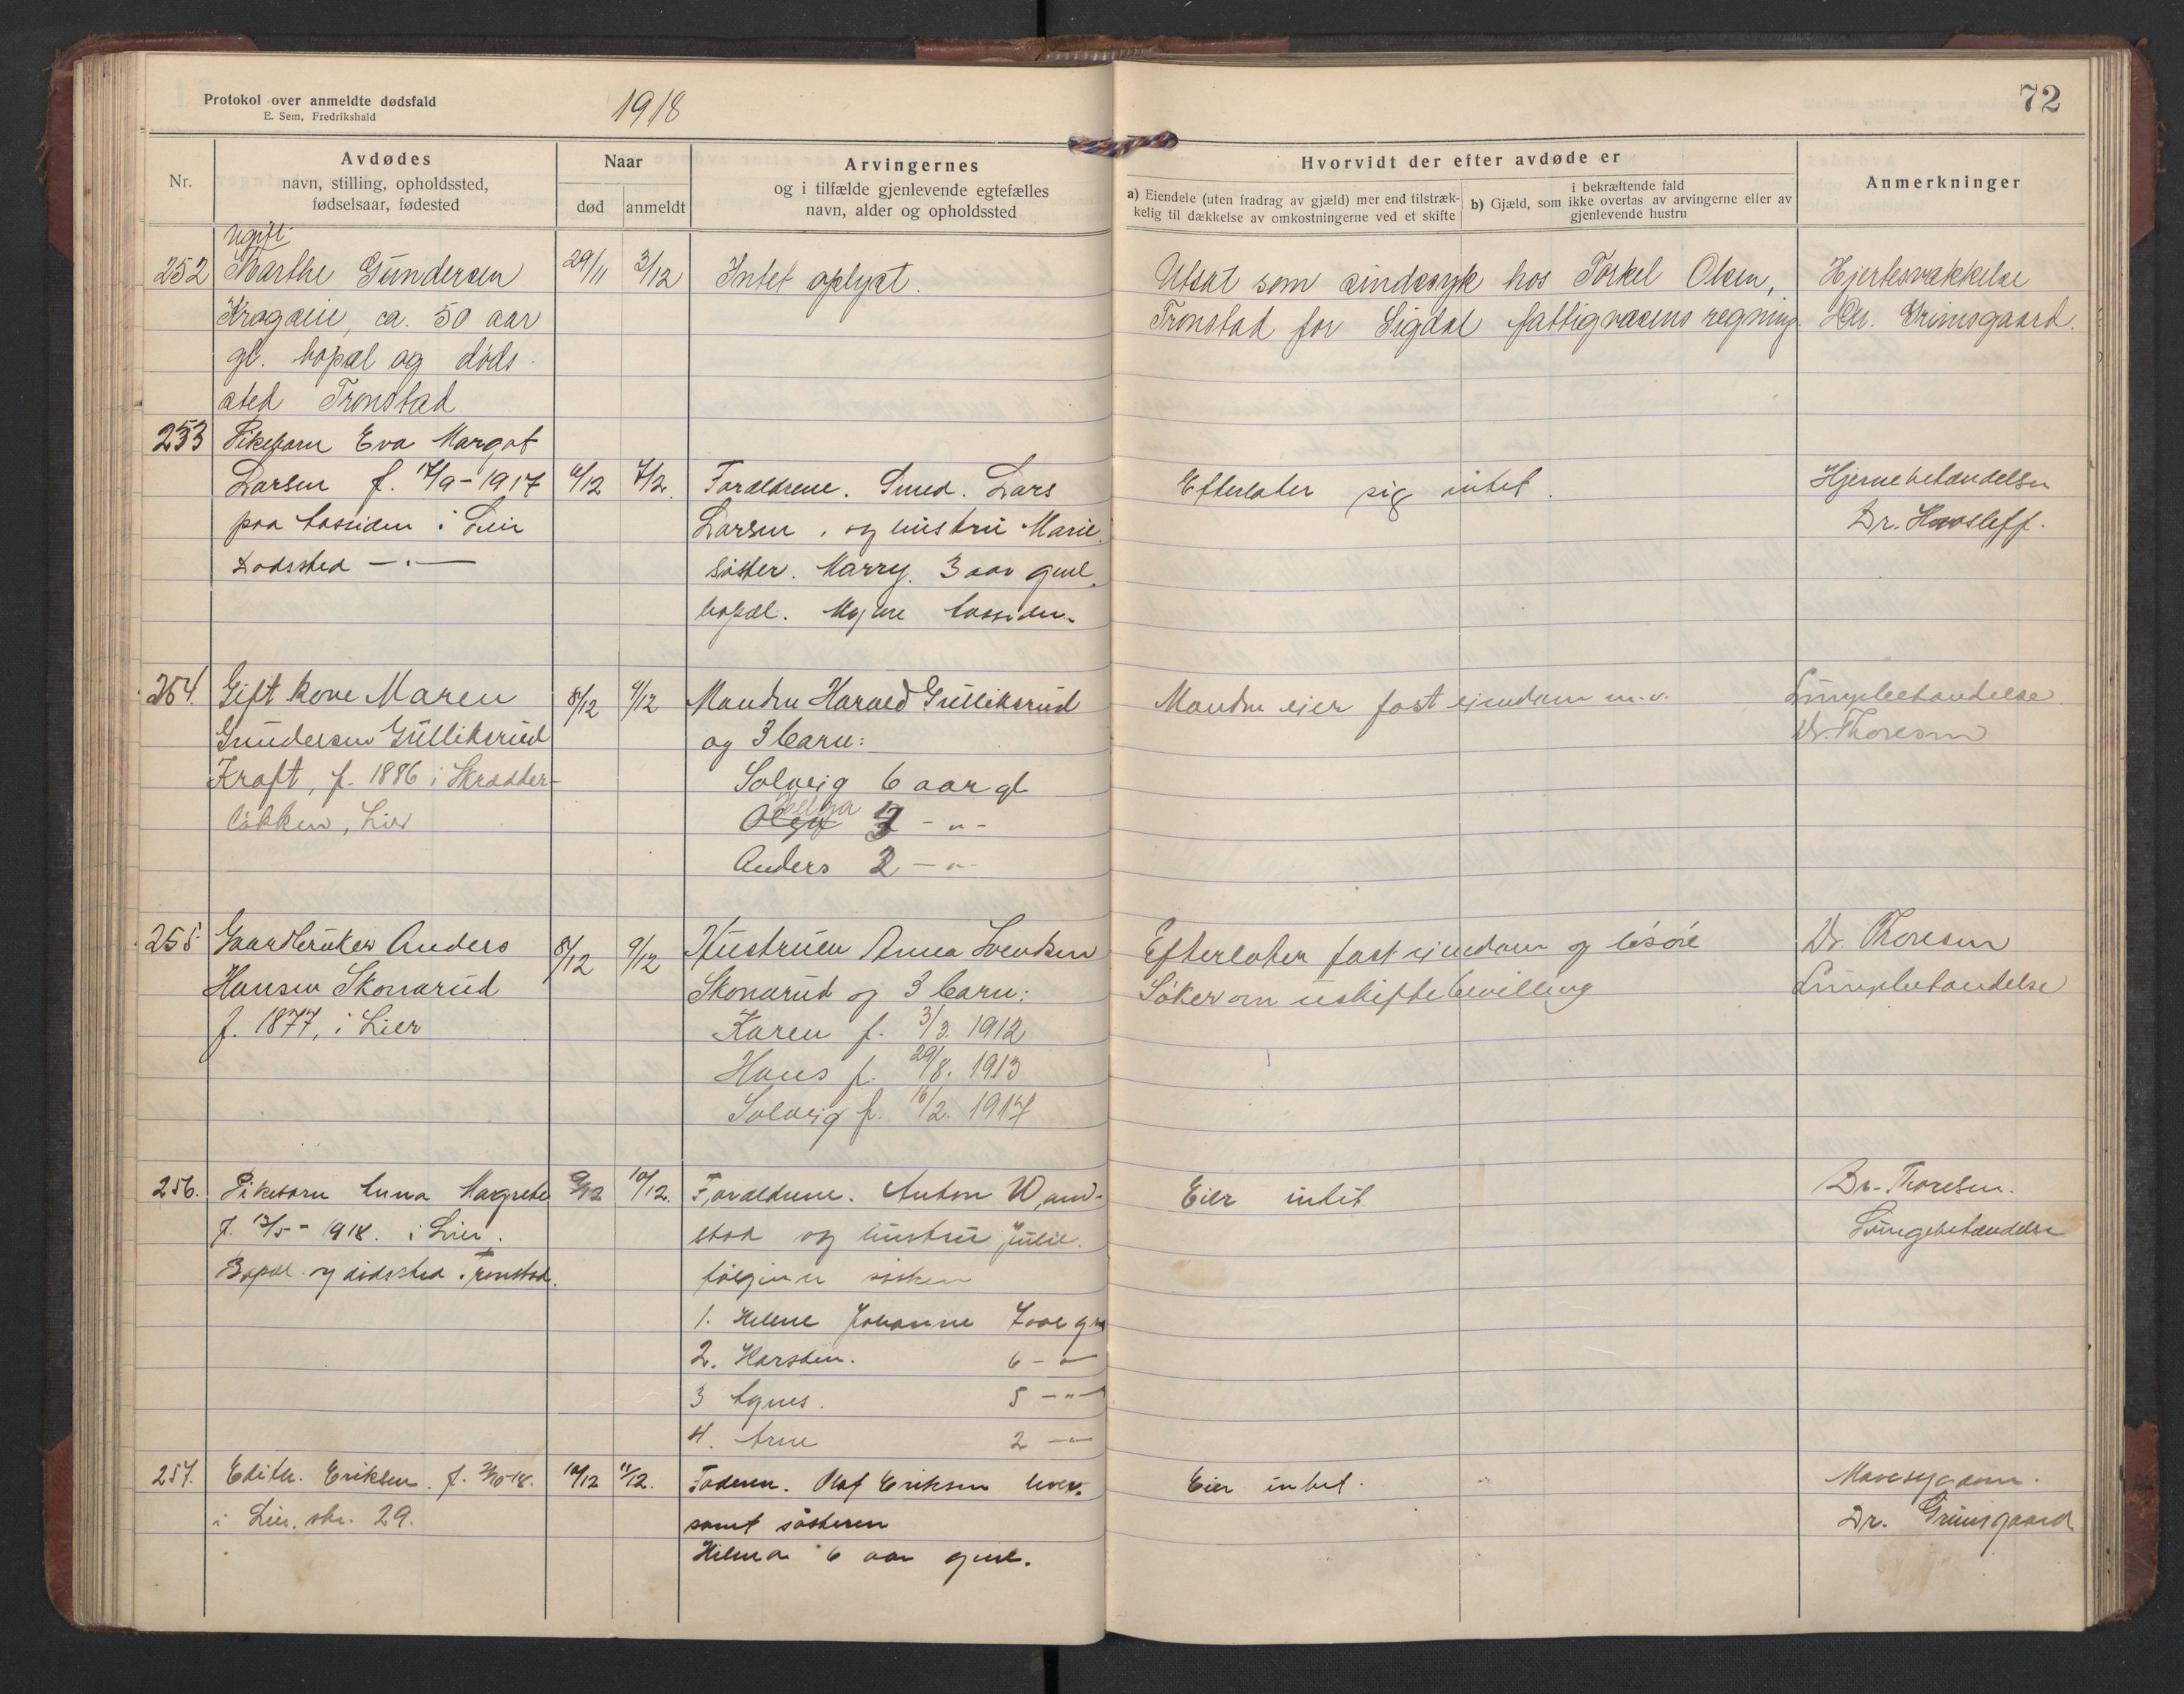 Protokol over anmeldte dødsfald
E. Sem, Fredrikshald
1918
72
Nr.
Avdødes
navn, stilling, opholdssted,
fødselsaar, fødested
Naar
død
anmeldt
Arvingernes
og i tilfælde gjenlevende egtefælles
navn, alder og opholdssted
Hvorvidt der efter avdøde er
a) Eiendele (uten fradrag av gjæld) mer end tilstræk-
kelig til dækkelse av omkostningerne ved et skifte
i bekræftende fald
b) Gjæld, som ikke overtas av arvingerne eller av
gjenlevende hustru
Anmerkninger
Ugift
252 Marthe Gundersen 29/11 3/12 Intet oplyst. Utsat som sindssyk hos Torkel Olsen, Hjertesvækkelse
Krageie, ca. 50 aar Tronstad for Sigdal fattigvæsens regning. Dr. Grimsgaard.
gl. bopæl og døds-
sted Tronstad
253 Pikebarn Eva Margot
Larsen f. 17/9-1917 6/12 7/12. Forældrene. Smed. Lars Efterlater sig intet. Hjernebetændelse
paa Aassiden i Lier Larsen, og hustru Marie. Dr. Havsleff.
Dødssted -"- søster. Marry. 3 aar gml.
bopæl. Aassiden.
254. Gift kone Maren 8/12 9/12 Manden Harald Gulliksrud Manden eier fast eiendom m.v. Lungebetændelse
Gundersen Gulliksrud og 3 barn: Dr. Thoresen
Kraft, f. 1886 i Skrædder- Solveig 6 aar gl
løkken, Lier Helga
- " -
Anders 2 - " -
255. Gaardbruker Anders 8/12 9/12 Hustruen Anna Svendsen Efterlater fast eiendom og løsøre Dr. Thoresen
Hansen Skonarud Skonarud og 3 barn: Søker om uskiftebevilling Lungebetændelse
f. 1877, i Lier Karen f. 3/3. 1912
Hans f. 29/8. 1913
Solveig f. 16/2. 1917
256. Pikebarn Anna Margrethe 9/12 10/12. Forældrene. Anton Wand- Eier intet Dr. Thoresen.
f. 13/5-1918. i Lier. stad og hustru Julie. Lungebetændelse
Bopæl og dødssted Tronstad. følgende søsken
1. Helene Johanne 7 aar gml
2. Karsten. 6 - " -
3 Agnes. 5 - " -
4. Arne 2 - " -
257. Edith. Eriksen. f. 10-18. 10/12 11/12. Faderen. Olaf Eriksen lever. Eier intet. Mavesygdom.
i Lier. str. 29. samt søsteren Dr. Grimsgaard
Hilma 6 aar gml.